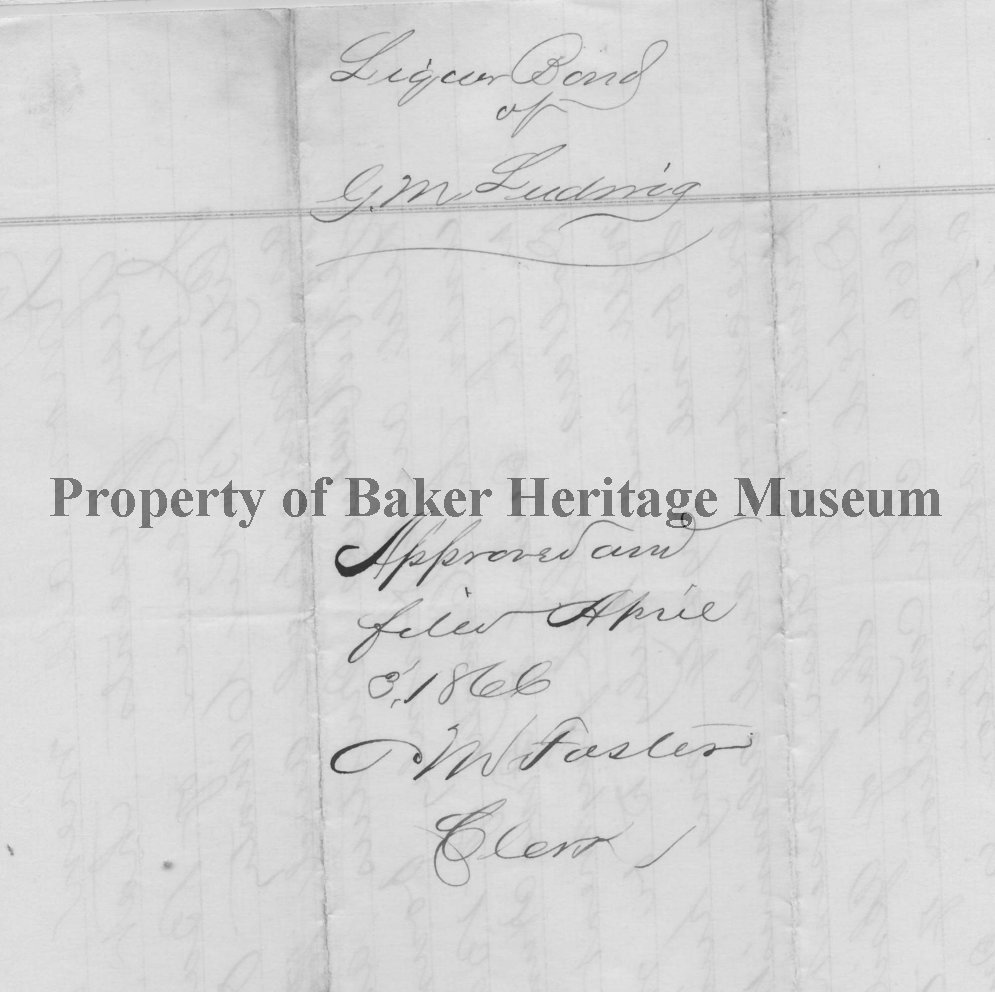 Liquor Bond
of
G. M. Ludwig
Property of Baker Heritage Museum
Approved and
filed April
3, 1866
W Foster
Clerk